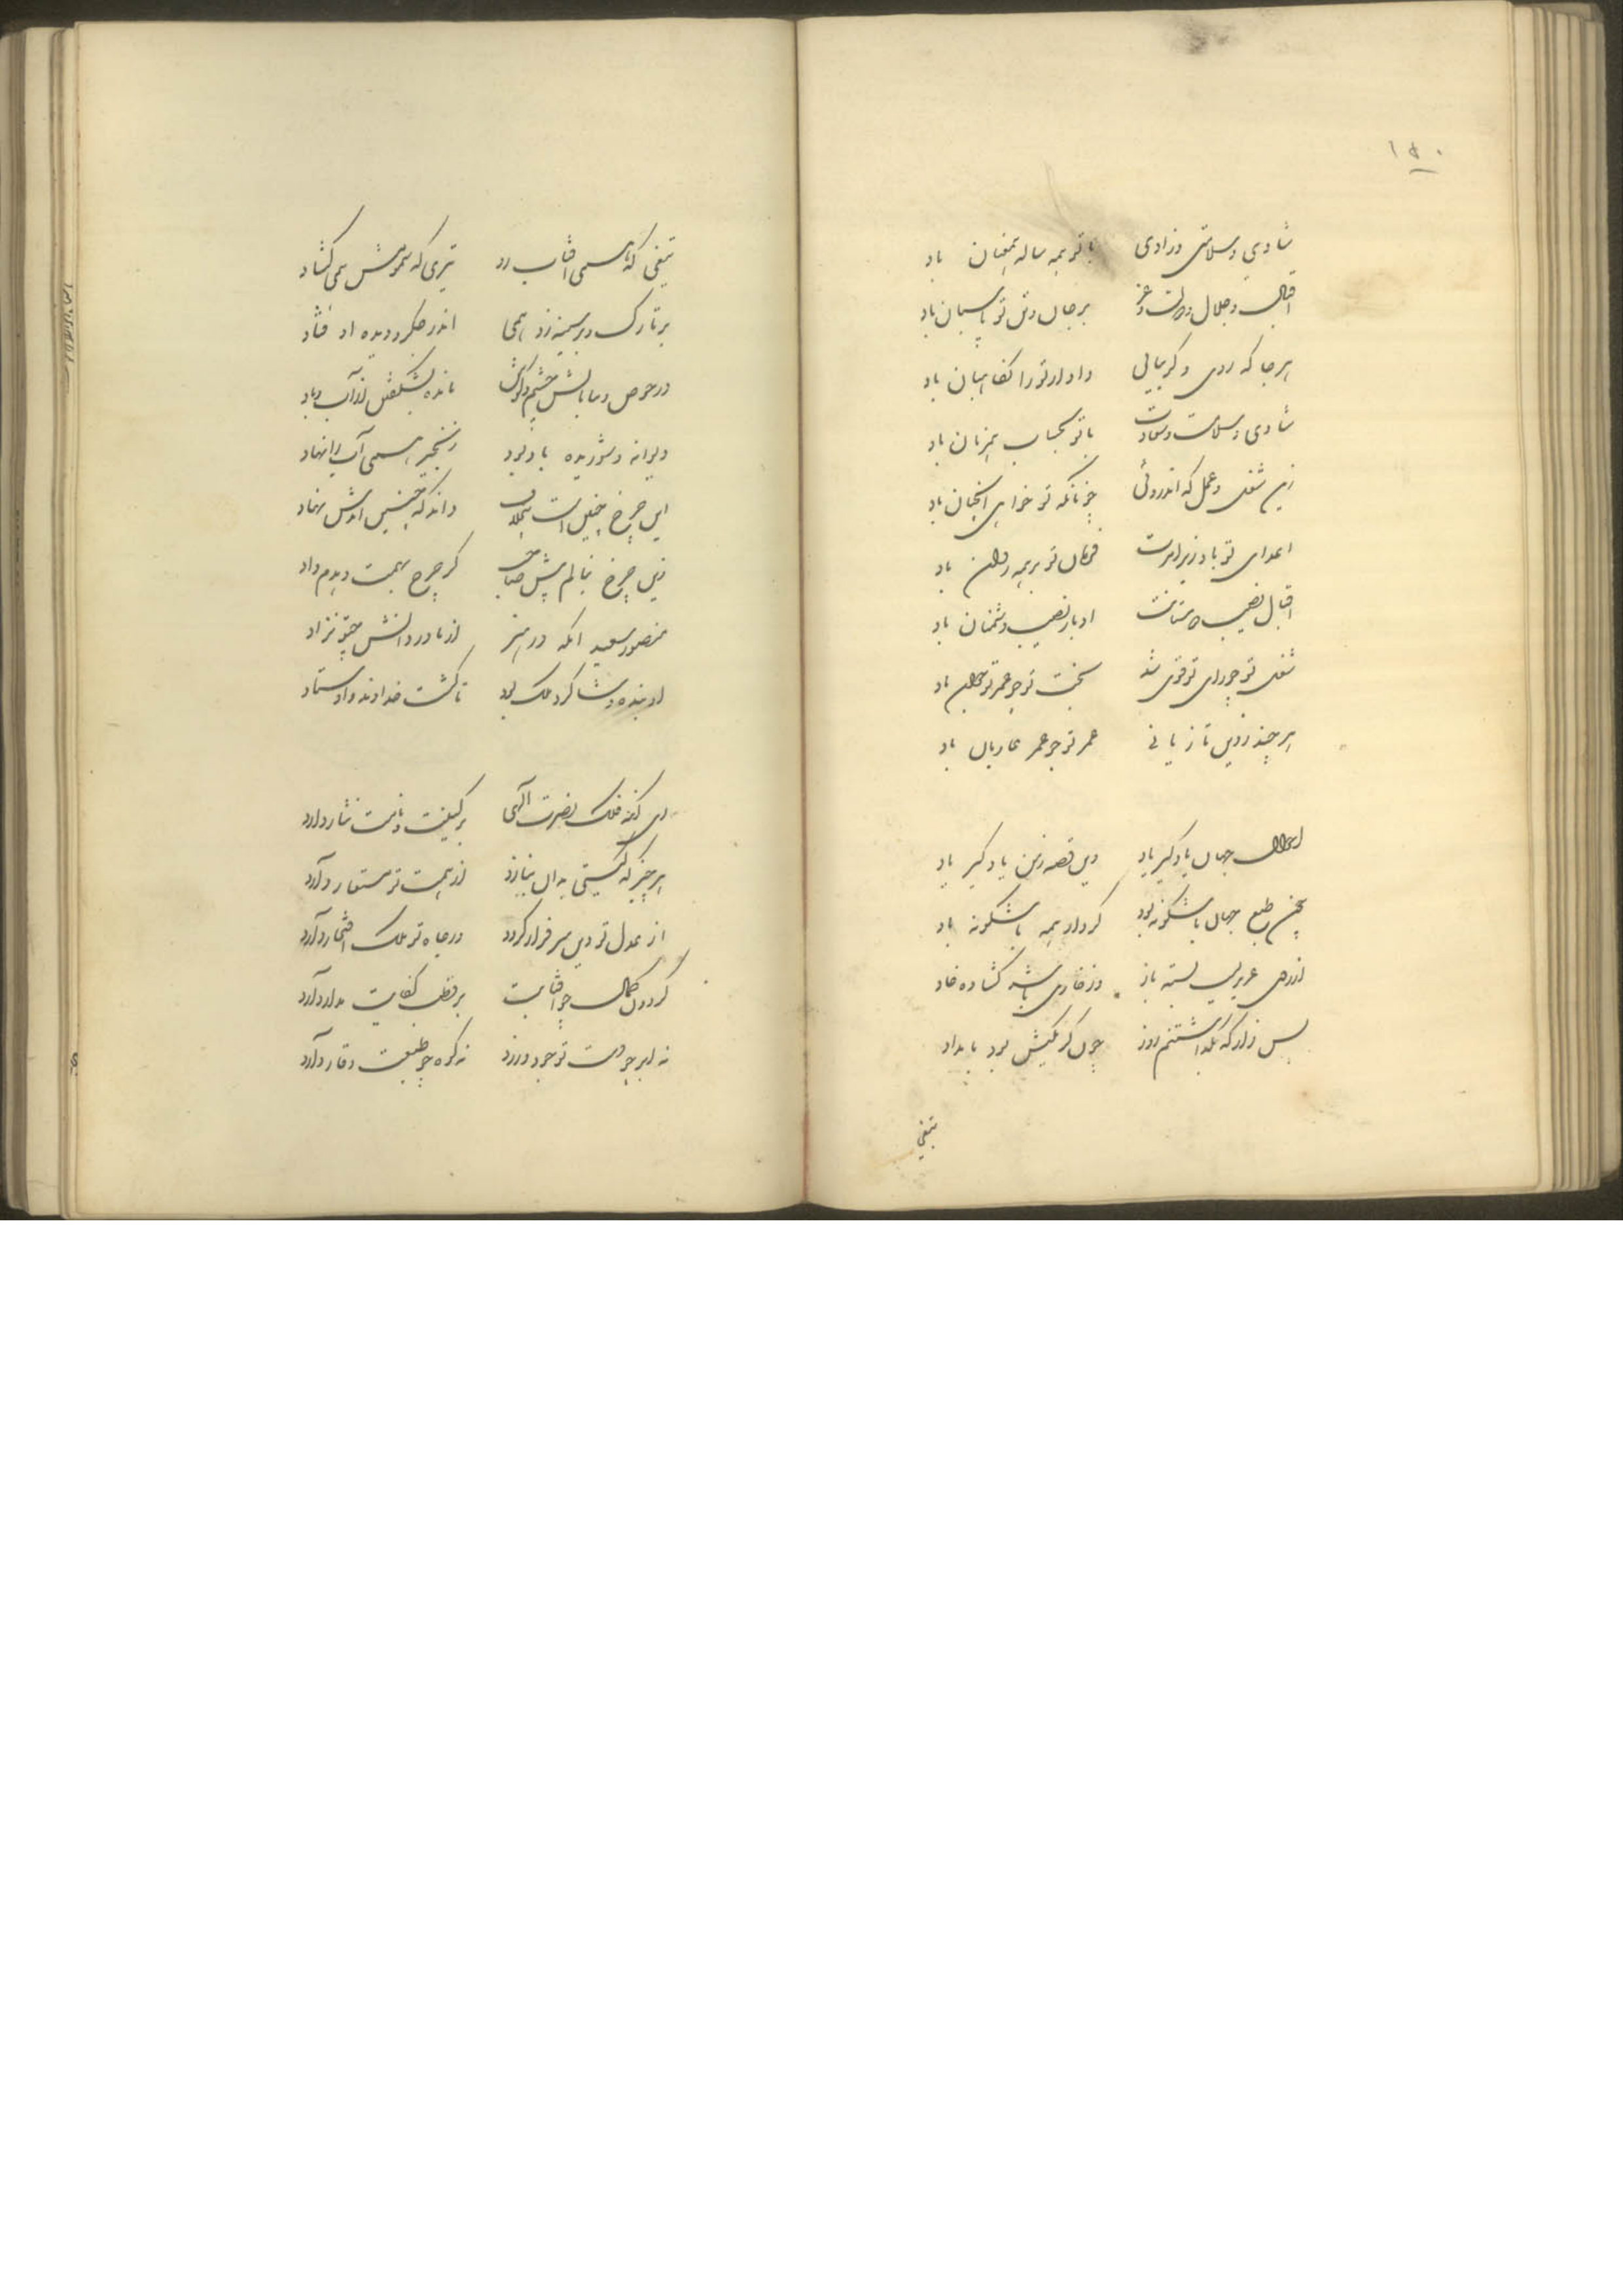 ۱۵۰
شادی و سلامتی و زادی با تو همه ساله همعنان باد
اقبال و جلال و دولت و عز بر جان و تن تو پاسبان باد
هر جا که روی و گر بیائی دادار تو را نگاهبان باد
شادی و سلامت و سعادت با تو همزمان باد
زین شغل و عمل که اندروئی چونانکه تو خواهی آنچنان باد
اعدای تو باد زیر امرت فرمان تو بر همه روان باد
اقبال نصیب دوستانت ادبار نصیب دشمنان باد
شغل تو چو رای تو قوی شد بخت تو چو عمر تو جوان باد
هر چند زدین تازیانی عمر تو چو عمر عادیان باد
احوال جهان بادگیر باد وین قصه زمن یادگیر یاد
چون طبع جهان باشگونه بود کردار همه باشگونه باد
از روی عزیزیست بسته باز وز خواری باشد گشاده خاد
بس زار که بگذاشتیم روز چون گرمگهش بود بامداد
تیغی
تیغی که همی آفتاب زد تیری که همی گشاد
بر تارک و بر سینه زد همی اندر جگر و دیده اوفتاد
در حوض و بیابانش چشم و گوش مانده بشگفتی از آب و باد
دیوانه و شوریده باد بود زنجیر همی آب را نهاد
این چرخ چنین است داند که چنین آمدش نهاد
زین چرخ بنالم پیش صاحب کز چرخ بهمت دهدم داد
منصور سعید آنکه در هنر از مادر دانش چنو نزاد
او بنده و شاگرد ملک بود تا گشت خداوند و اوستاد
ای آنکه فلک بنصرت الهی بر کنیت و نامت نثار دارد
هر چیز که گیتی بدان بنازد از همت تو مستعار دارد
از عدل تو دین سرفراز گردد وز جاه تو ملک افتخار دارد
گردون کمال چو آفتابت بر قطب کفایت مدار دارد
نه ابر چو دست تو جود ورزد نه کوه چو طبعت وقار دارد